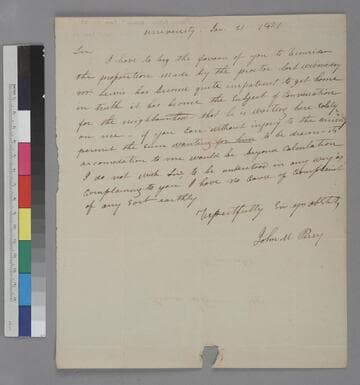 University Jan. 21 1821
Sir
I have to beg the favour of you to Consider
the proposition made by the proctor last wednesday
Mr Lewis has become quite impatient to get home
in truth it has become the subject of Conversation
for the neighbourhood that he is waiting here solely
on me – if you Can without injury to the
permit the sum wanting for him to be drawn its
accomodation to me would be beyond Calculation
I do not wish Sir to be understood in any way as
Complaining to you I have no Cause of Complaint
of any sort earthly
Respectfully Sir yr ob St
John M Perry